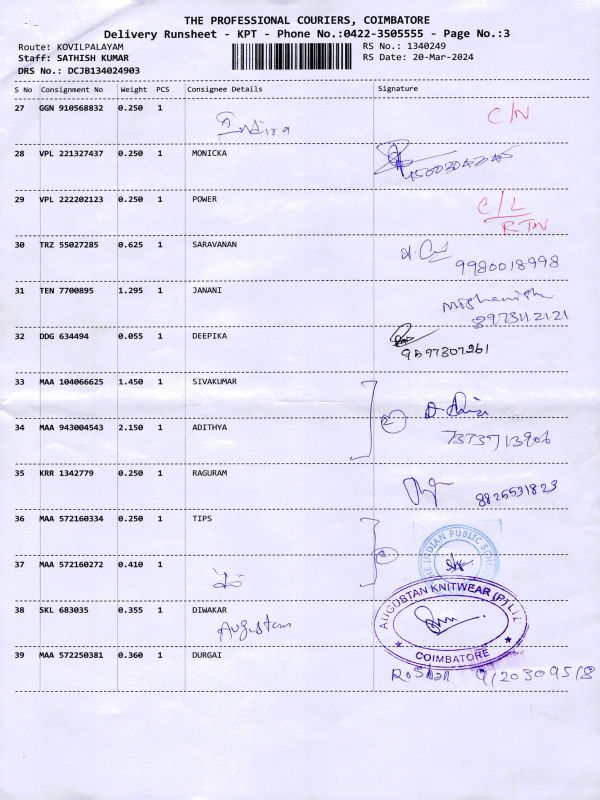 THE PROFESSIONAL COURIERS, COIMBATORE
Delivery Runsheet - KPT - Phone No.:0422-3505555 - Page No.:3
Route: KOVILPALAYAM
RS No.: 1340249
Staff: SATHISH KUMAR
RS Date: 20-Mar-2024
DRS No.: DCJB134024903
S No Consignment No Weight PCS Consignee Details Signature
27 GGN 910568832 0.250 1 Indira C/N
28 VPL 221327437 0.250 1 MONICKA
29 VPL 222202123 0.250 1 POWER C/L
RTN
30 TRZ 55027285 0.625 1 SARAVANAN
9980018998
31 TEN 7700895 1.295 1 JANANI
8973112121
32 DDG 634494 0.055 1 DEEPIKA
9597807261
33 MAA 104066625 1.450 1 SIVAKUMAR
2
34 MAA 943004543 2.150 1 ADITHYA
7373713906
35 KRR 1342779 0.250 1 RAGURAM
8825531823
36 MAA 572160334 0.250 1 TIPS
THE INDIAN PUBLIC SCHOOL
37 MAA 572160272 0.410 1
38 SKL 683035 0.355 1 DIWAKAR
Augustan
AUGUSTAN KNITWEAR (P) LTD
COIMBATORE
39 MAA 572250381 0.360 1 DURGAI
Roshan 9120309518